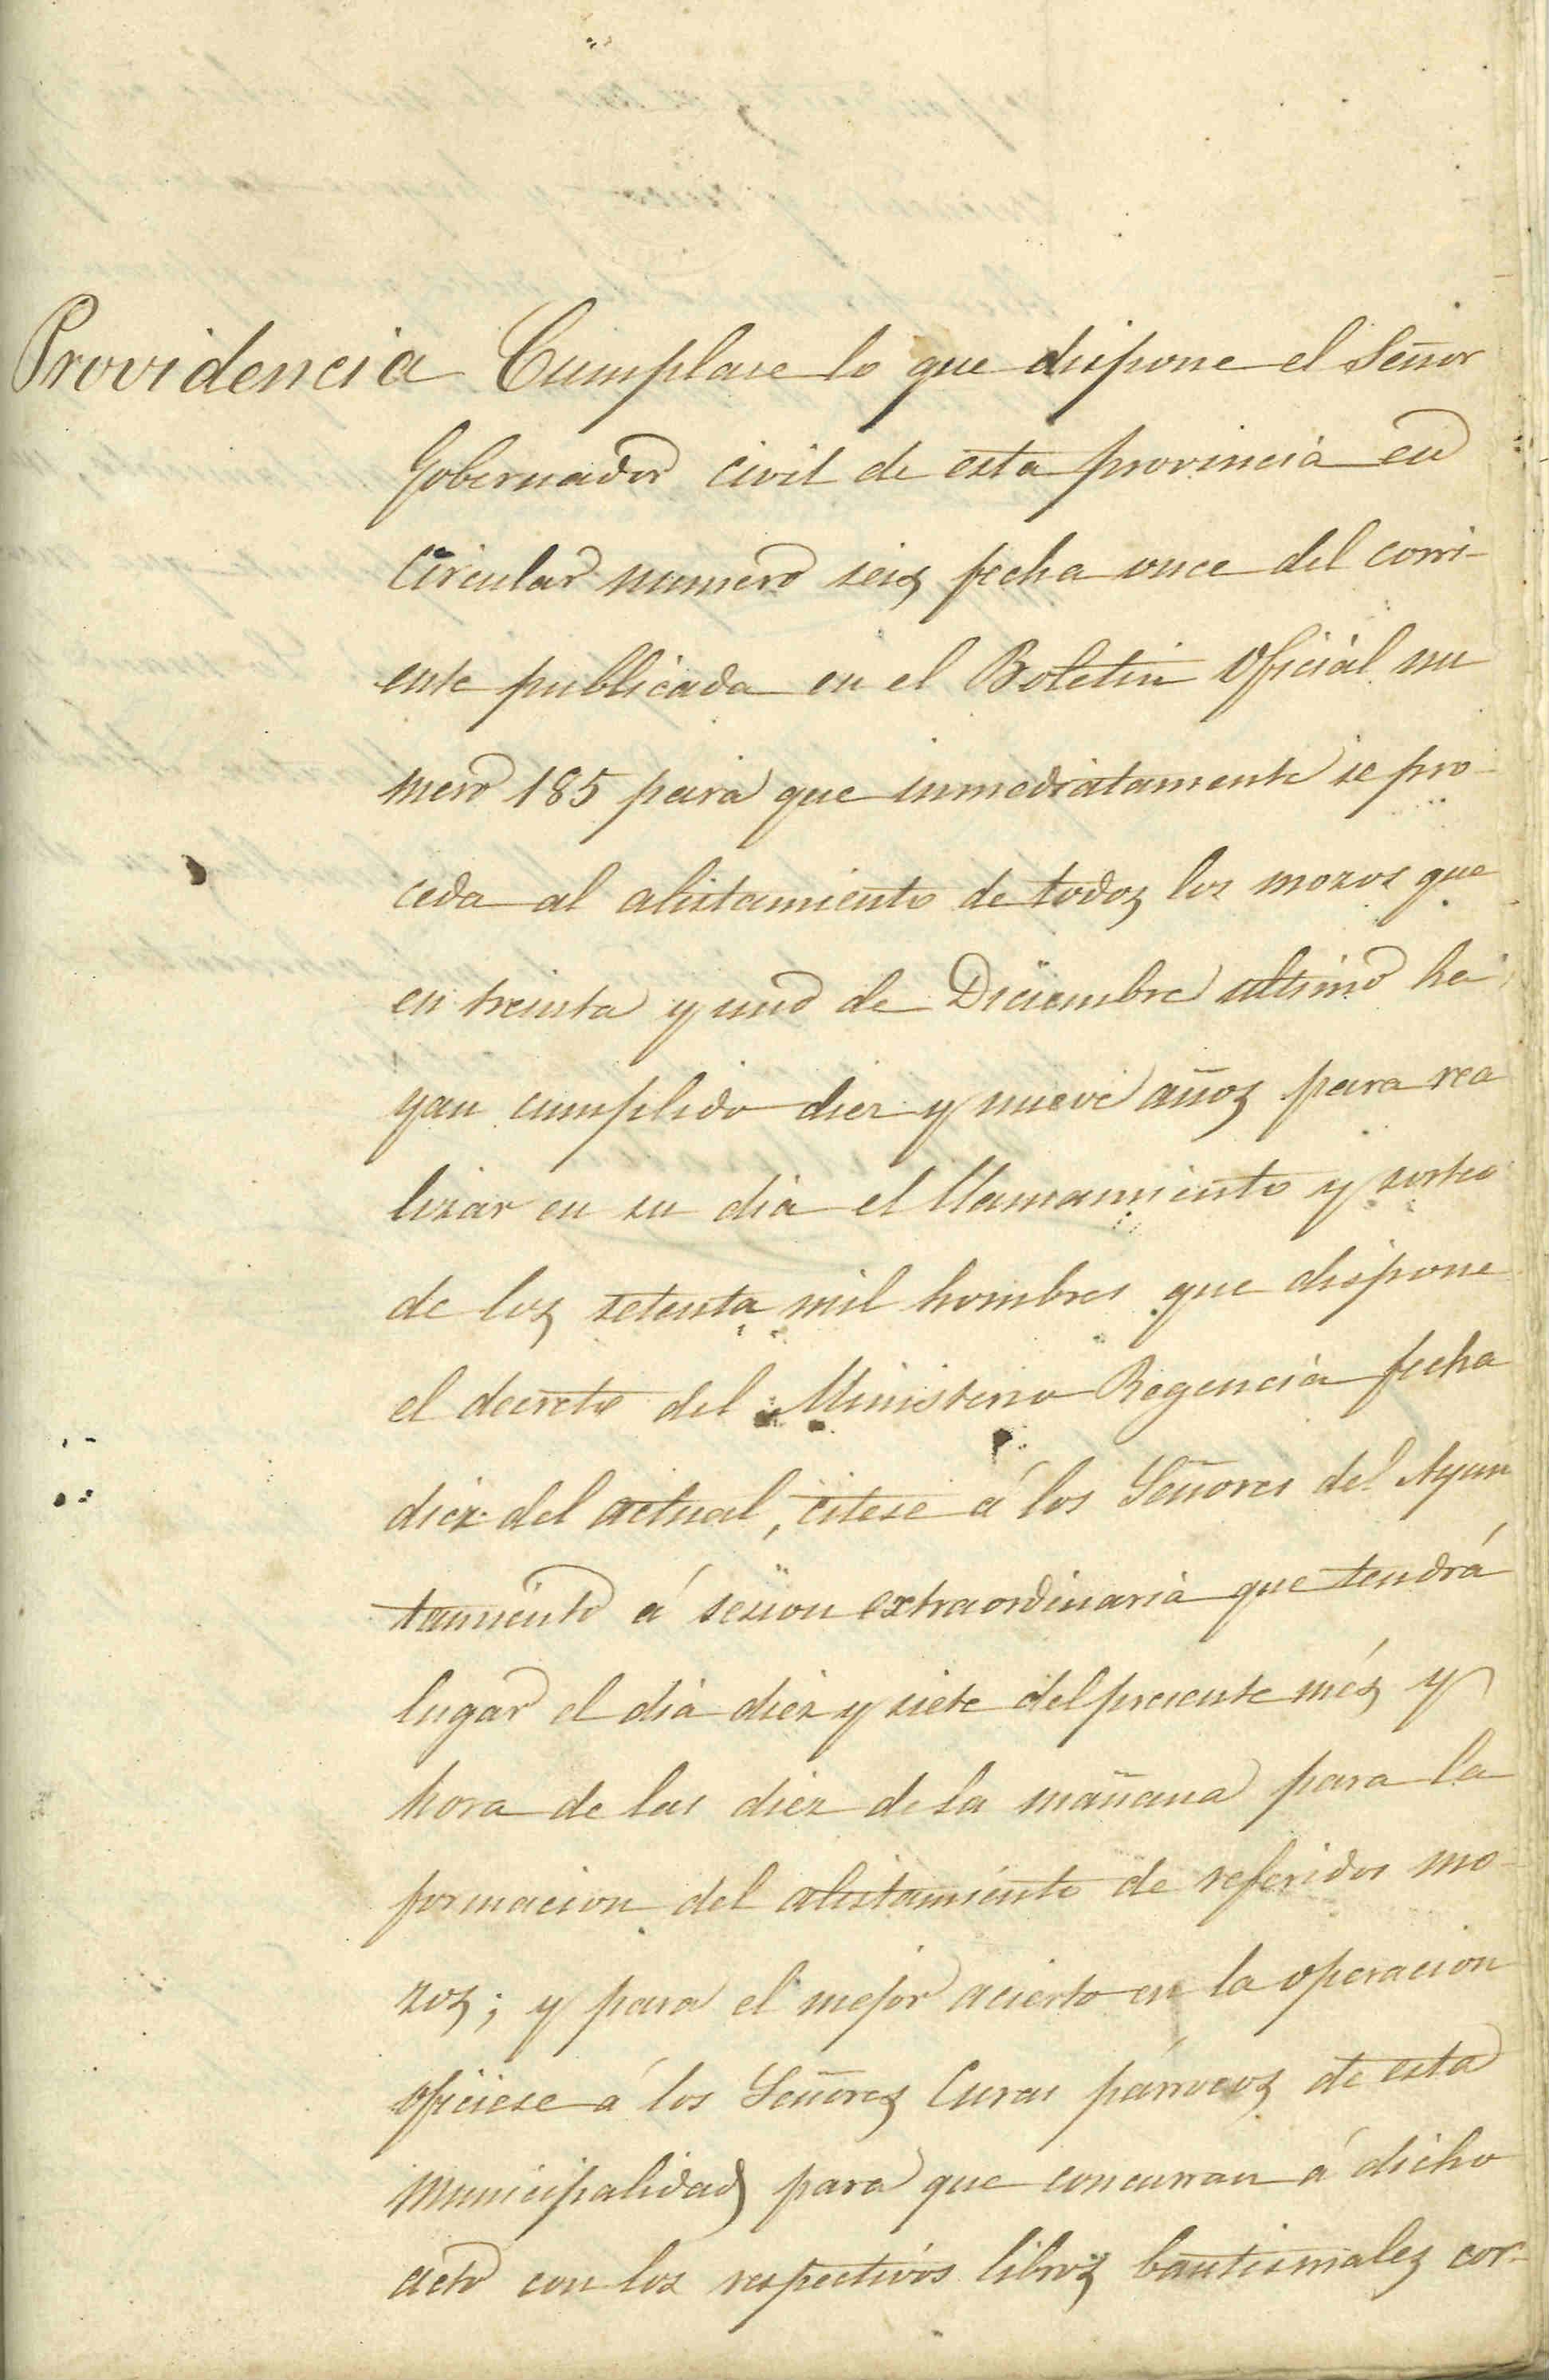 Providencia Cumplase lo que dispone el Señor
Gobernador civil de esta provincia en
Circular numero seis fecha once del corri-
ente publicada en el Boletin Oficial nu
mero 185 para que inmediatamente se pro-
ceda al alistamiento de todos los mozos que
en treinta y uno de Diciembre ultimo ha
yan cumplido diez y nueve años para rea
lizar en su dia el llamamiento y sorteo
de los setenta mil hombres que dispone
el decreto del Ministerio Regencia fecha
diez del actual, citese á los Señores del Ayun
tamiento á sesion extraordinaria que tendrá
lugar el dia diez y siete del presente més y
hora de las diez de la mañana para la
formacion del alistamiento de referidos mo-
zos; y para el mejor acierto en la operacion
oficiese á los Señores Curas párrocos de esta
Municipalidad para que concurran á dicho
acto con los respectivos libros bautismales cor-